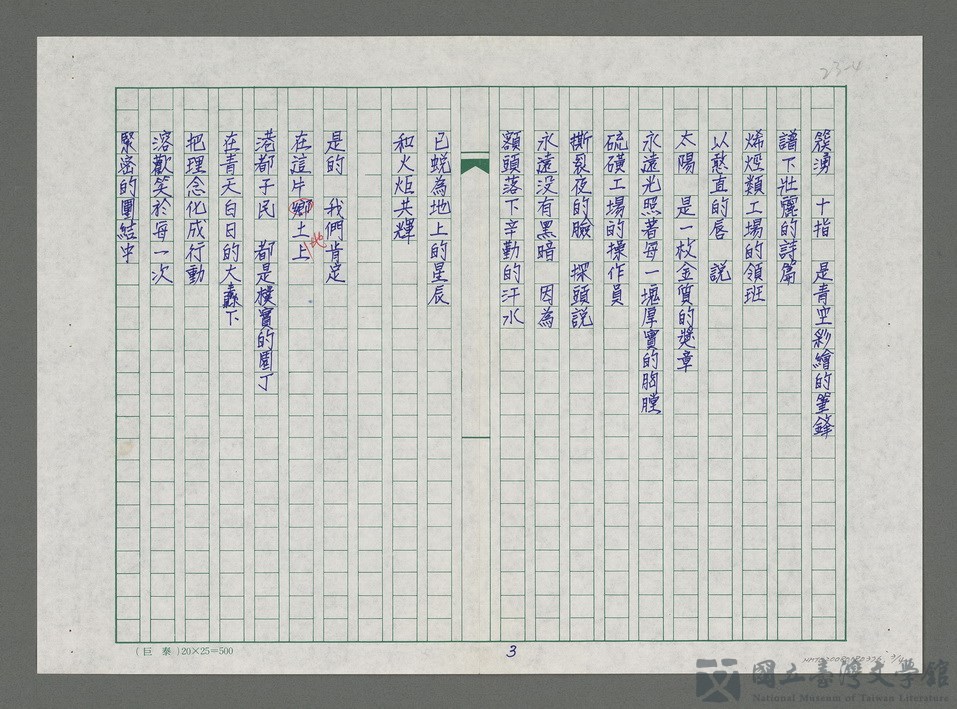 23-4
簇湧　十指　是青空彩繪的筆鋒
譜下壯麗的詩篇
烯烴類工場的領班
以憨直的唇　說
太陽　是一枚金質的獎章
永遠光照著每一塊厚實的胸膛
硫磺工場的操作員
撕裂夜的臉　探頭說
永遠没有黑暗　因為
額頭落下辛勤的汗水
已蜕為地上的星辰
和火炬共輝
是的　我們肯定
在這片鄉土上
地
港都子民　都是樸實的園丁
在青天白日的大纛下
把理念化成行動
溶歡笑於每一次
緊密的團結中
(巨泰)20×25=500
3
國立臺灣文學館
National Museum of Taiwan Literature